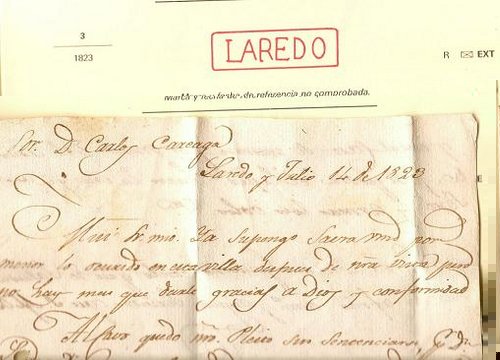 3
1823
LAREDO
R EXT
marca y recuadro, de referencia no comprobada.
E
Sor. D. Carlos Careaga
Laredo y Julio 14 de 1823
Mui Sr. mio. Ya supongo Savra vmd por
menor lo ocurrido en esa villa despues de
no hay mas que darle gracias a Dios y conformidad
Al favor quedo Pleito sin sentenciarse